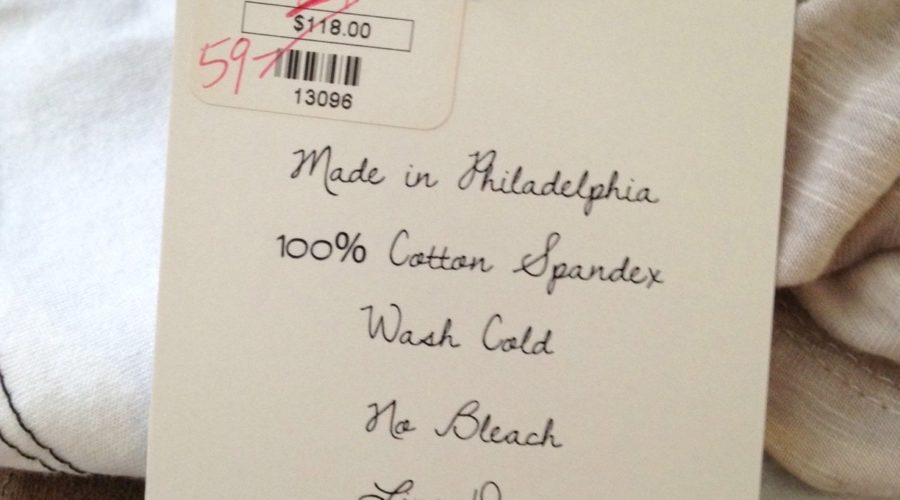 $118.00
59-
13096
Made in Philadelphia
100% Cotton Spandex
Wash Cold
No Bleach